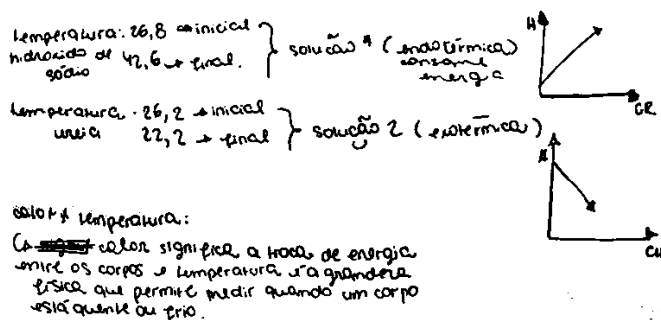 temperatura: 26,8 → inicial
hidróxido de 42,6 → final.
sódio
solução 1 (endotérmica)
consome
energia
H
CR
temperatura - 26,2 → inicial
ureia 22,2 → final
solução 2 (exotérmica)
H
calor x temperatura:
calor significa a troca de energia
entre os corpos e temperatura é a grandeza
física que permite medir quando um corpo
está quente ou frio.